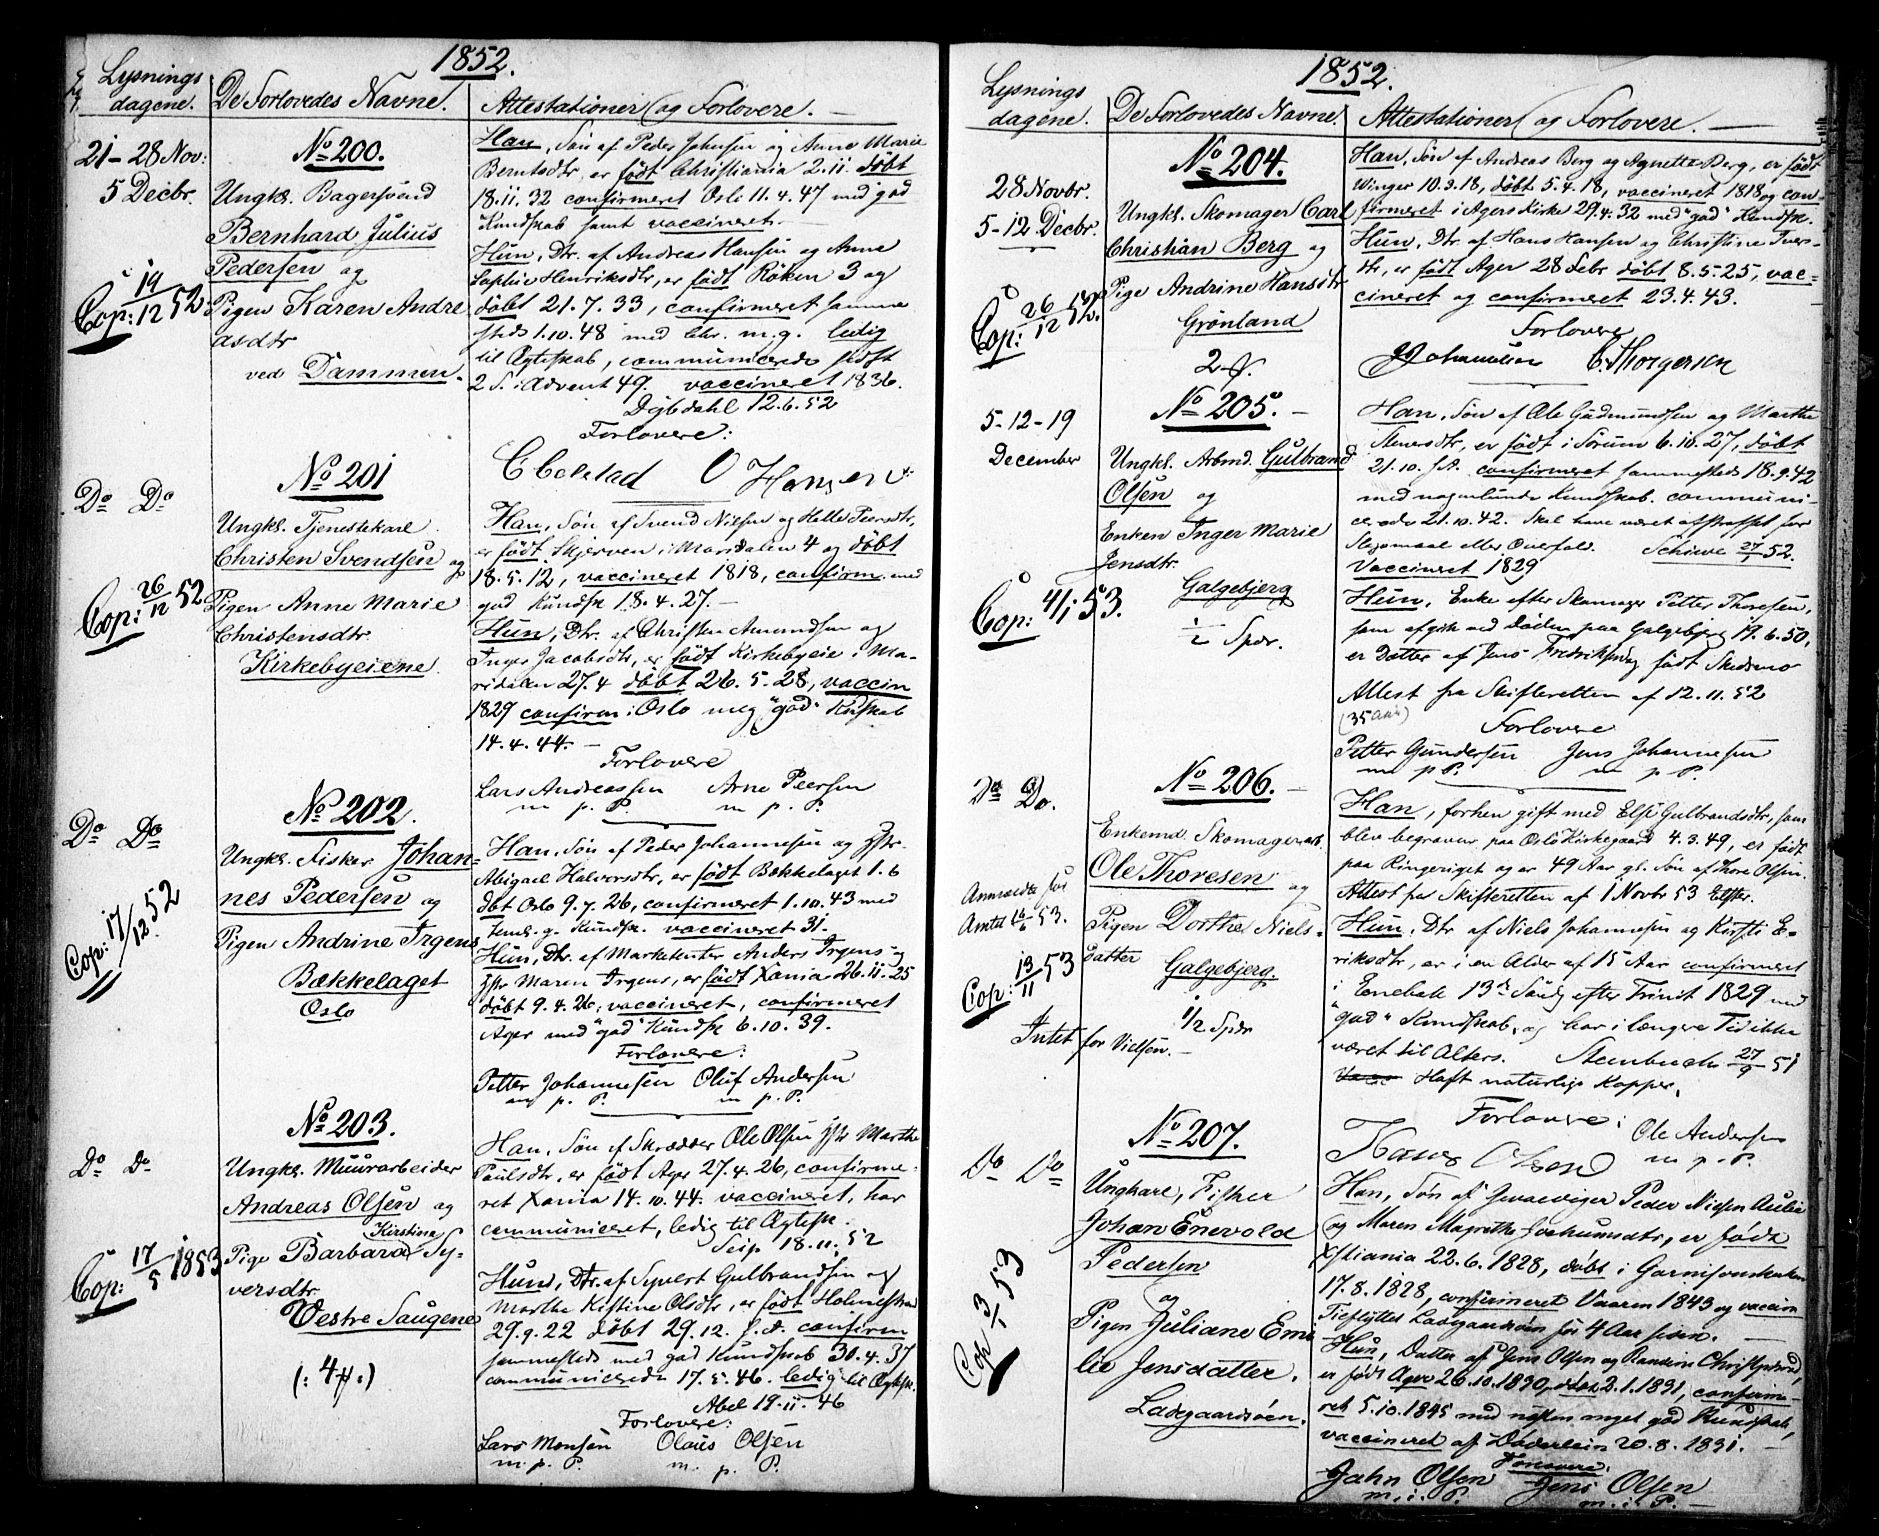 1852.
Lysnings
dagene.
De Forlovedes Navne.
Attestationer og Forlovere. —
21–28 Nov:
5 Decbr.
Cop: 19/12 52.
No 200.
Ungkl. Bagersvend
Bernhard Julius
Pedersen og
Pigen Karen Andre
asdtr
ved Dammen.
Han, Søn af Peder Johnsen og Anne Marie
Berntsdtr, er født Christiania 2.11. døbt
18.11.32 confirmeret Oslo 11.4.47 med god
Kundskab samt vaccineret.
Hun, Dtr. af Andreas Hansen og Anne
Sophie Henriksdtr, er født Røken 3 og
døbt 21.7.33, confirmeret samme
steds 1.10.48 med Chr. m.g. ledig
til Ægteskab, communicerede sidst
2 S. i Advent 49. vaccineret 1836.
Dybdahl 12.6.52
Forlovere:
C Ebelstad O Hansen
Do Do
Cop: 26/12 52
No 201
Ungkl. Tjenestekarl
Christen Svendsen og
Pigen Anne Marie
Christensdtr.
Kirkebyeiene
Han, Søn af Svend Nilsen og Helle Peersdtr,
er født Skjerven i Maridalen 4 og døbt
18.5.12, vaccineret 1818, confirm. med
god Kundsk 18.4.27. —
Hun, Dtr. af Christen Amundsen og
Inger Jacobsdtr, er født Kirkebyeie i Ma-
ridalen 27.4 døbt 26.5.28, vaccin
1829 confirm i Oslo meg "god" Kuskab
14.4.44. —
Forlovere
Lars Andreassen Arne Peersen
m. p. P. m. p. P.
Do Do
Cop: 17/12 52
No 202.
Ungkl. Fisker Johan-
nes Pedersen og
Pigen Andrine Irgens
Bækkelaget
Oslo
Han, Søn af Peder Johannesen og Hstr.
Abigael Halvorsdtr, er født Bækkelaget 1.6
døbt Oslo 9.7.26, confirmeret 1.10.43 med
temel. g. Kundsk. vaccineret 31.
Hun, Dtr. af Marketenter Anders Irgens og
Hstr Maren Irgens, er født Xania 26.11.25
døbt 9.4.26, vaccineret, confirmeret
Ager med "god" Kundsk 6.10.39.
Forlovere:
Petter Johannesen Oluf Andersen
m. p. P. m. p. P.
Do Do
Cop: 17/5 1853
No 203.
Ungkl. Muurarbeider
Andreas Olsen og
Kirstina
Pige Barbara Sy-
versdtr
Vestre Saugene
(: 4 :)
Han, Søn af Skrædder Ole Olsen Hstr Marthe
Paulsdtr, er født Ager 27.4.26, confirme-
ret Xania 14.10.44. vaccineret, har
communiceret, ledig til Ægtesk.
Seip 18.11.52
Hun, Dtr. af Syvert Gulbrandsen og
Marthe Kistine Olsdtr, er født Holmestrand
29.9.22 døbt 29.12. s.A. confirm
sammesteds med god Kundskab 30.4.37
communicerede 17.5.46. ledig til Ægtesk.
Abel 19.11.46
Forlovere:
Lars Monsen Olaus Olsen
m. p. P. m. p. P.
1852.
Lysnings
dagene.
De Forlovedes Navne.
Attestationer og Forlovere. —
28 Novbr.
5–12 Decbr.
Cop: 26/12 52.
No 204.
Ungkl. Skomager Carl
Christian Berg og
Pige Andrine Hansdtr
Grønland
Han, Søn af Andreas Berg og Agnette Berg, er født
Winger 10.3.18, døbt 5.4.18, vaccineret 1818 og con-
firmeret i Agers Kirke 29.4.32 med "god" Kundsk.
Hun, Dtr. af Hans Hansen og Christine Ivers-
dtr, er født Ager 28 Febr døbt 8.5.25, vac-
cineret og confirmeret 23.4.43.
Forlovere
Johannesen C. Thorgersen
5–12–19
December
Cop: 4/1 53.
No 205. —
Ungkl. Arbmd. Gulbrand
Olsen og
Enken Inger Marie
Jensdtr.
Galgebjerg
1/2 Spdr.
Han, Søn af Ole Gudmundsen og Marthe
Stenersdtr, er født i Sørum 6.10.27, døbt
21.10. s.A. confirmeret sammesteds 18.9.42
med nogenlunde Kundskab. communi-
cerede 21.10.42. Skal have været afstraffet for
Slagsmaal eller Overfald. Schiwe 27/ 52.
Vaccineret 1829
Hun, Enke efter Skomager Petter Thoresen,
som afgik ved døden paa Galgebjerg 19.6.50,
er Datter af Jens Fredriksen født Skedsmo
Attest fra Skifteretten af 12.11.52
(35 Aar)
Forlovere
Petter Gundersen Jens Johannesen
m p P. m p P.
Do Do.
Anmeldt for
Amtet 53.
Cop: 13/11 53
Intet for Vielsen. —
No 206. —
Enkemd. Skomagerarb.
Ole Thoresen og
Pigen Dorthe Niels-
datter
Galgebjerg.
1/2 Spdr
Han, forhen gift med Else Gulbrandsdtr, som
blev begraven paa Oslo Kirkegaard 4.3.49, er født
paa Ringeriget og er 49 Aar gl. Søn af Thore Olsen.
Attest fra Skifteretten af 1 Novbr 53 Elster.
Hun, Dtr. af Niels Johannesen og Kirsti E-
riksdtr, er i en Alder af 15 Aar confirmeret
i Enebak 13de Søndg efter Trinit 1829 med
"god" Kundskab, og har i længere Tid ikke
været til Alters. Steenbuch 27/9 51
Haft naturlige Kopper.
Forlovere:
Hans Olsen Ole Andersen
m. p. P.
Do Do
Cop 3/1 53
No 207.
Ungkarl, Fisker
Johan Enevold
Pedersen
og
Pigen Juliane Emi
lie Jensdatter.
Ladegaardsøen.
Han, Søn af Peder Nielsen Aulie
og Maren Magrethe Jochumsdtr, er født
Xstiania 22.6.1828, døbt i Garnisonskirken
17.8.1828, confirmeret Vaaren 1843 og vaccin
Tilflyttet Ladegaardsøen for 4 Aar siden. —
Hun, Datter af Jens Olsen og Randine Christophersdtr,
er født Ager 26.10.1830, døbt 2.1.1831, confirm-
ret 5.10.1845 med næsten meget god Kundskab,
vaccineret af Døderlein 20.8.1831. —
Forlovere:
John Olsen Jens Olsen
m. i. P. m. i P. —